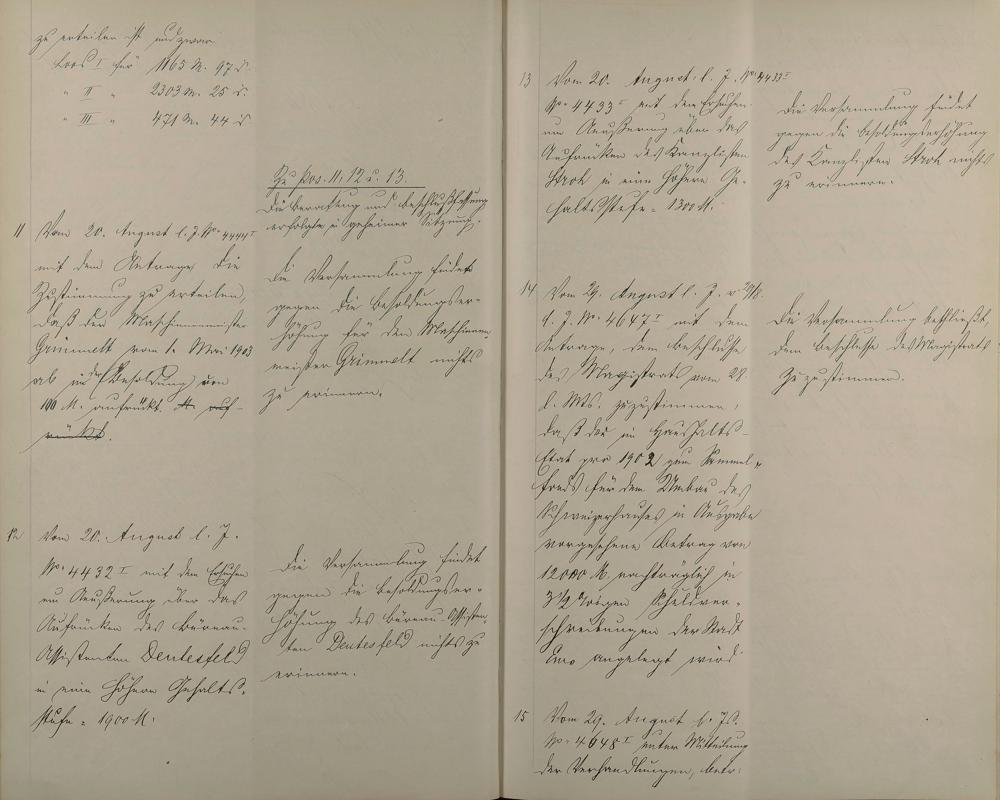 zu erteilen ist und zwar
Loos I für 1165 M. 97 ₰.
" II " 2303 M. 25 ₰.
" III " 471 M. 44 ₰
Zu Pos. 11, 12 u. 13.
Die Beratung und Beschlußfassung
erfolgte in geheimer Sitzung.
11 Vom 20. August l. J. No. 4444 I
mit dem Antrage, die
Zustimmung zu erteilen,
daß der Maschinenmeister
Grimmelt vom 1. Mai 1903
ab in der Besoldung von
100 M. aufrückt. M. auf-
rückt.
Die Versammlung findet
gegen die Besoldungser-
höhung für den Maschinen-
meister Grimmelt nichts
zu erinnern.
12 Vom 20. August l. J.
No. 4432 I mit dem Ersuchen
um Aeußerung über das
Aufrücken des Büreau-
Assistenten Deutesfeld
in eine höhere Gehalts-
stufe = 1900 M.
Die Versammlung findet
gegen die Besoldungser-
höhung des Büreau-Assisten-
ten Deutesfeld nichts zu
erinnern.
13 Vom 20. August l. J. No. 4433 I
No. 4433 I mit dem Ersuchen
um Aeußerung über das
Aufrücken des Kanzlisten
Stroh in eine höhere Ge-
haltsstufe = 1300 M.
Die Versammlung findet
gegen die Besoldungserhöhung
des Kanzlisten Stroh nichts
zu erinnern.
14 Vom 29. August l. J. v. 29/8.
d. J. No. 4647 I mit dem
Antrage, dem Beschlusse
des Magistrats vom 28.
l. Mts. zuzustimmen,
daß der im Haushalts-
Etat pro 1902 zum Sammel-
fonds für den Umbau des
Schweizerhauses in Ausgabe
vorgesehene Betrag von
12000 M. nachträglich in
3 1/2 %igen Schuldver-
schreibungen der Stadt
Ems angelegt wird
Die Versammlung beschließt,
dem Beschlusse des Magistrats
zuzustimmen.
15 Vom 29. August l. Js.
No. 4648 I unter Mitteilung
der Verhandlungen, betr.